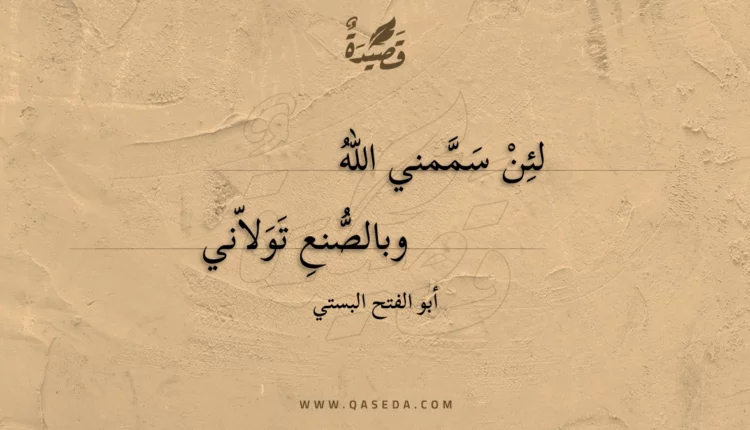 قَصِيْدَةٌ
لئِنْ سَمَّمني اللهُ
وبالصُّنعِ تَوَلاّني
أبو الفتح البستي
WWW.QASEDA.COM